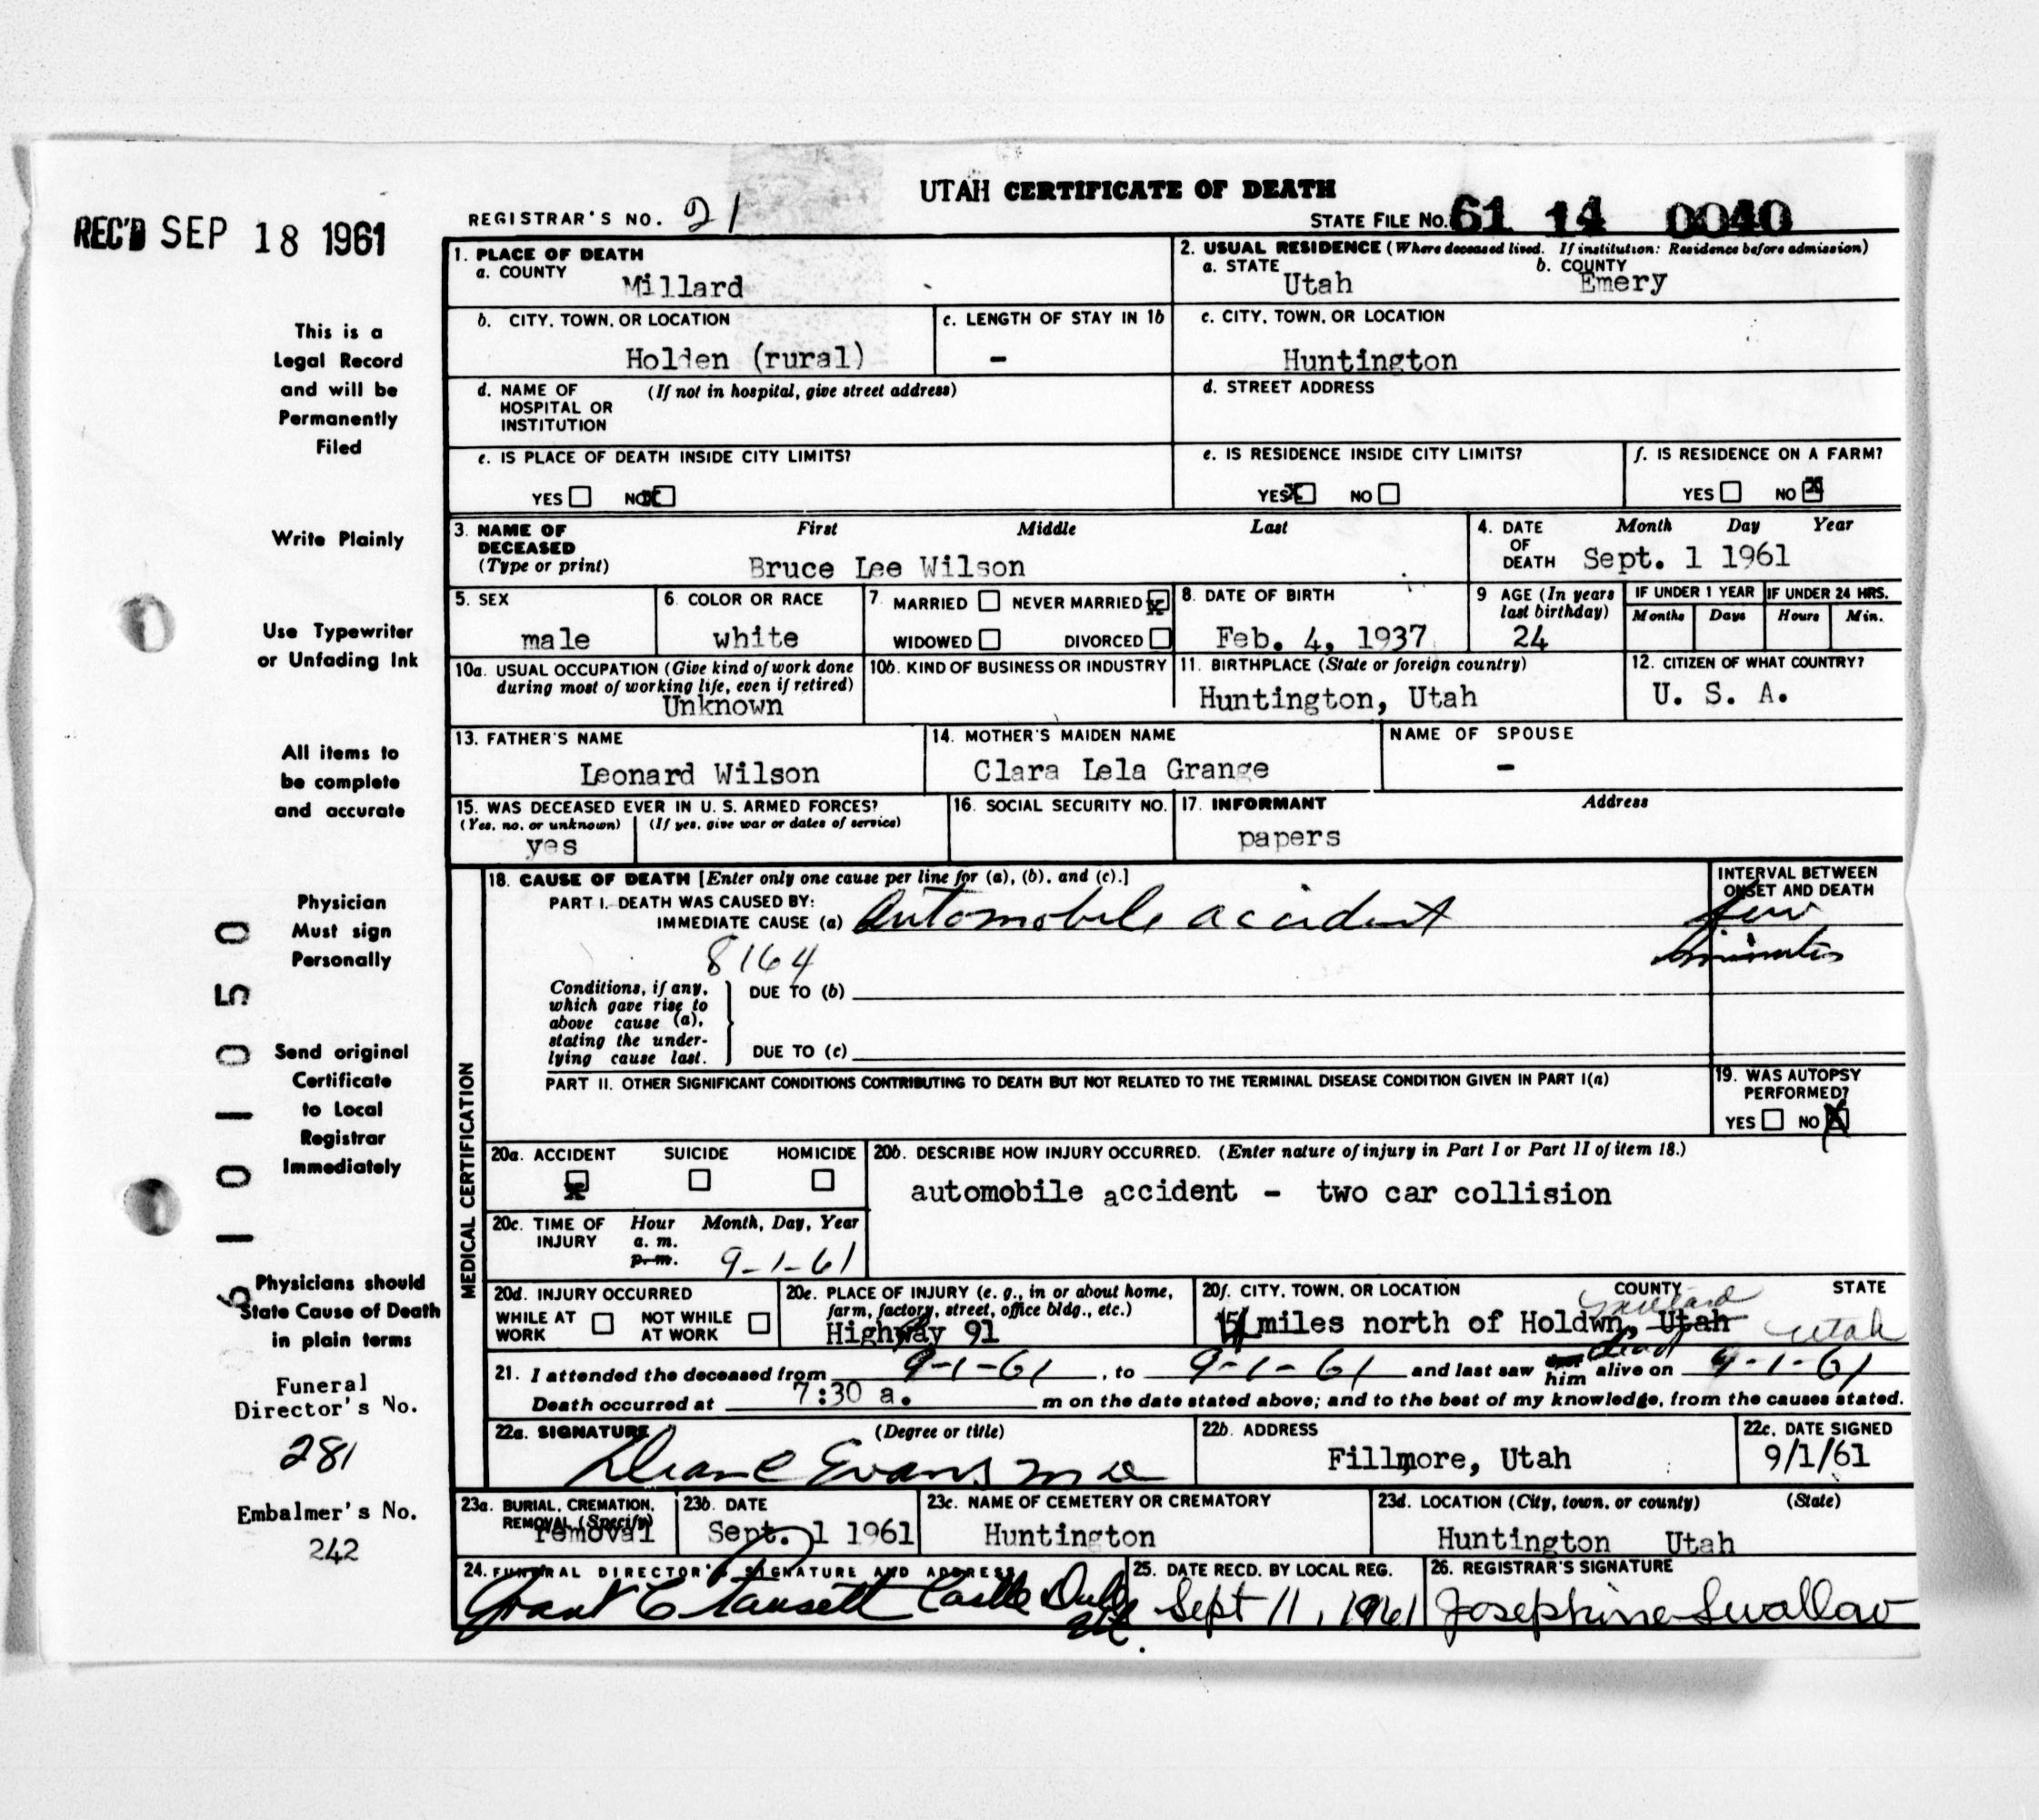 UTAH CERTIFICATE OF DEATH
REC'D SEP 18 1961
REGISTRAR'S NO. 21
STATE FILE NO. 61 14 0040
This is a
Legal Record
and will be
Permanently
Filed
Write Plainly
Use Typewriter
or Unfading Ink
All items to
be complete
and accurate
Physician
Must sign
Personally
Send original
Certificate
to Local
Registrar
Immediately
Physicians should
State Cause of Death
in plain terms
Funeral
Director's No.
281
Embalmer's No.
242
6101050
1. PLACE OF DEATH
a. COUNTY
Millard
2. USUAL RESIDENCE (Where deceased lived. If institution: Residence before admission)
a. STATE
Utah
b. COUNTY
Emery
b. CITY, TOWN, OR LOCATION
Holden (rural)
c. LENGTH OF STAY IN 1b
-
c. CITY, TOWN, OR LOCATION
Huntington
d. NAME OF (If not in hospital, give street address)
HOSPITAL OR
INSTITUTION
d. STREET ADDRESS
e. IS PLACE OF DEATH INSIDE CITY LIMITS?
YES NO X
e. IS RESIDENCE INSIDE CITY LIMITS?
YES X NO
f. IS RESIDENCE ON A FARM?
YES NO X
3. NAME OF First Middle Last
DECEASED
(Type or print)
Bruce Lee Wilson
4. DATE Month Day Year
OF
DEATH Sept. 1 1961
5. SEX
male
6. COLOR OR RACE
white
7. MARRIED NEVER MARRIED X
WIDOWED DIVORCED
8. DATE OF BIRTH
Feb. 4, 1937
9 AGE (In years
last birthday)
24
IF UNDER 1 YEAR
Months Days
IF UNDER 24 HRS.
Hours Min.
10a. USUAL OCCUPATION (Give kind of work done
during most of working life, even if retired)
Unknown
10b. KIND OF BUSINESS OR INDUSTRY
11. BIRTHPLACE (State or foreign country)
Huntington, Utah
12. CITIZEN OF WHAT COUNTRY?
U. S. A.
13. FATHER'S NAME
Leonard Wilson
14. MOTHER'S MAIDEN NAME
Clara Lela Grange
NAME OF SPOUSE
-
15. WAS DECEASED EVER IN U. S. ARMED FORCES?
(Yes, no, or unknown) (If yes, give war or dates of service)
yes
16. SOCIAL SECURITY NO.
17. INFORMANT Address
papers
MEDICAL CERTIFICATION
18. CAUSE OF DEATH [Enter only one cause per line for (a), (b), and (c).]
PART I. DEATH WAS CAUSED BY:
IMMEDIATE CAUSE (a) Automobile accident
8164
INTERVAL BETWEEN
ONSET AND DEATH
few
minutes
Conditions, if any,
which gave rise to
above cause (a),
stating the under-
lying cause last.
DUE TO (b)
DUE TO (c)
PART II. OTHER SIGNIFICANT CONDITIONS CONTRIBUTING TO DEATH BUT NOT RELATED TO THE TERMINAL DISEASE CONDITION GIVEN IN PART I(a)
19. WAS AUTOPSY
PERFORMED?
YES NO X
20a. ACCIDENT SUICIDE HOMICIDE
X
20b. DESCRIBE HOW INJURY OCCURRED. (Enter nature of injury in Part I or Part II of item 18.)
automobile accident - two car collision
20c. TIME OF Hour Month, Day, Year
INJURY a. m.
p. m. 9-1-61
20d. INJURY OCCURRED
WHILE AT WORK NOT WHILE AT WORK
20e. PLACE OF INJURY (e. g., in or about home,
farm, factory, street, office bldg., etc.)
Highway 91
20f. CITY, TOWN, OR LOCATION COUNTY STATE
miles north of Holdwn, Utah Millard Utah
21. I attended the deceased from 9-1-61, to 9-1-61 and last saw him dead alive on 9-1-61
Death occurred at 7:30 a. m on the date stated above; and to the best of my knowledge, from the causes stated.
22a. SIGNATURE (Degree or title)
Evans MD
22b. ADDRESS
Fillmore, Utah
22c. DATE SIGNED
9/1/61
23a. BURIAL, CREMATION,
REMOVAL (Specify)
removal
23b. DATE
Sept. 1 1961
23c. NAME OF CEMETERY OR CREMATORY
Huntington
23d. LOCATION (City, town, or county) (State)
Huntington Utah
24. FUNERAL DIRECTOR'S SIGNATURE AND ADDRESS
Grant C Castle Dale
25. DATE RECD. BY LOCAL REG.
Sept 11, 1961
26. REGISTRAR'S SIGNATURE
Josephine Swallow